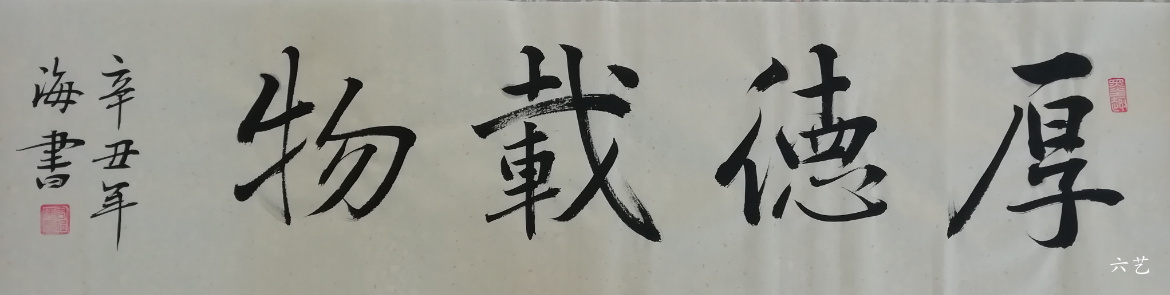 厚德載物
辛丑年
海書
六艺